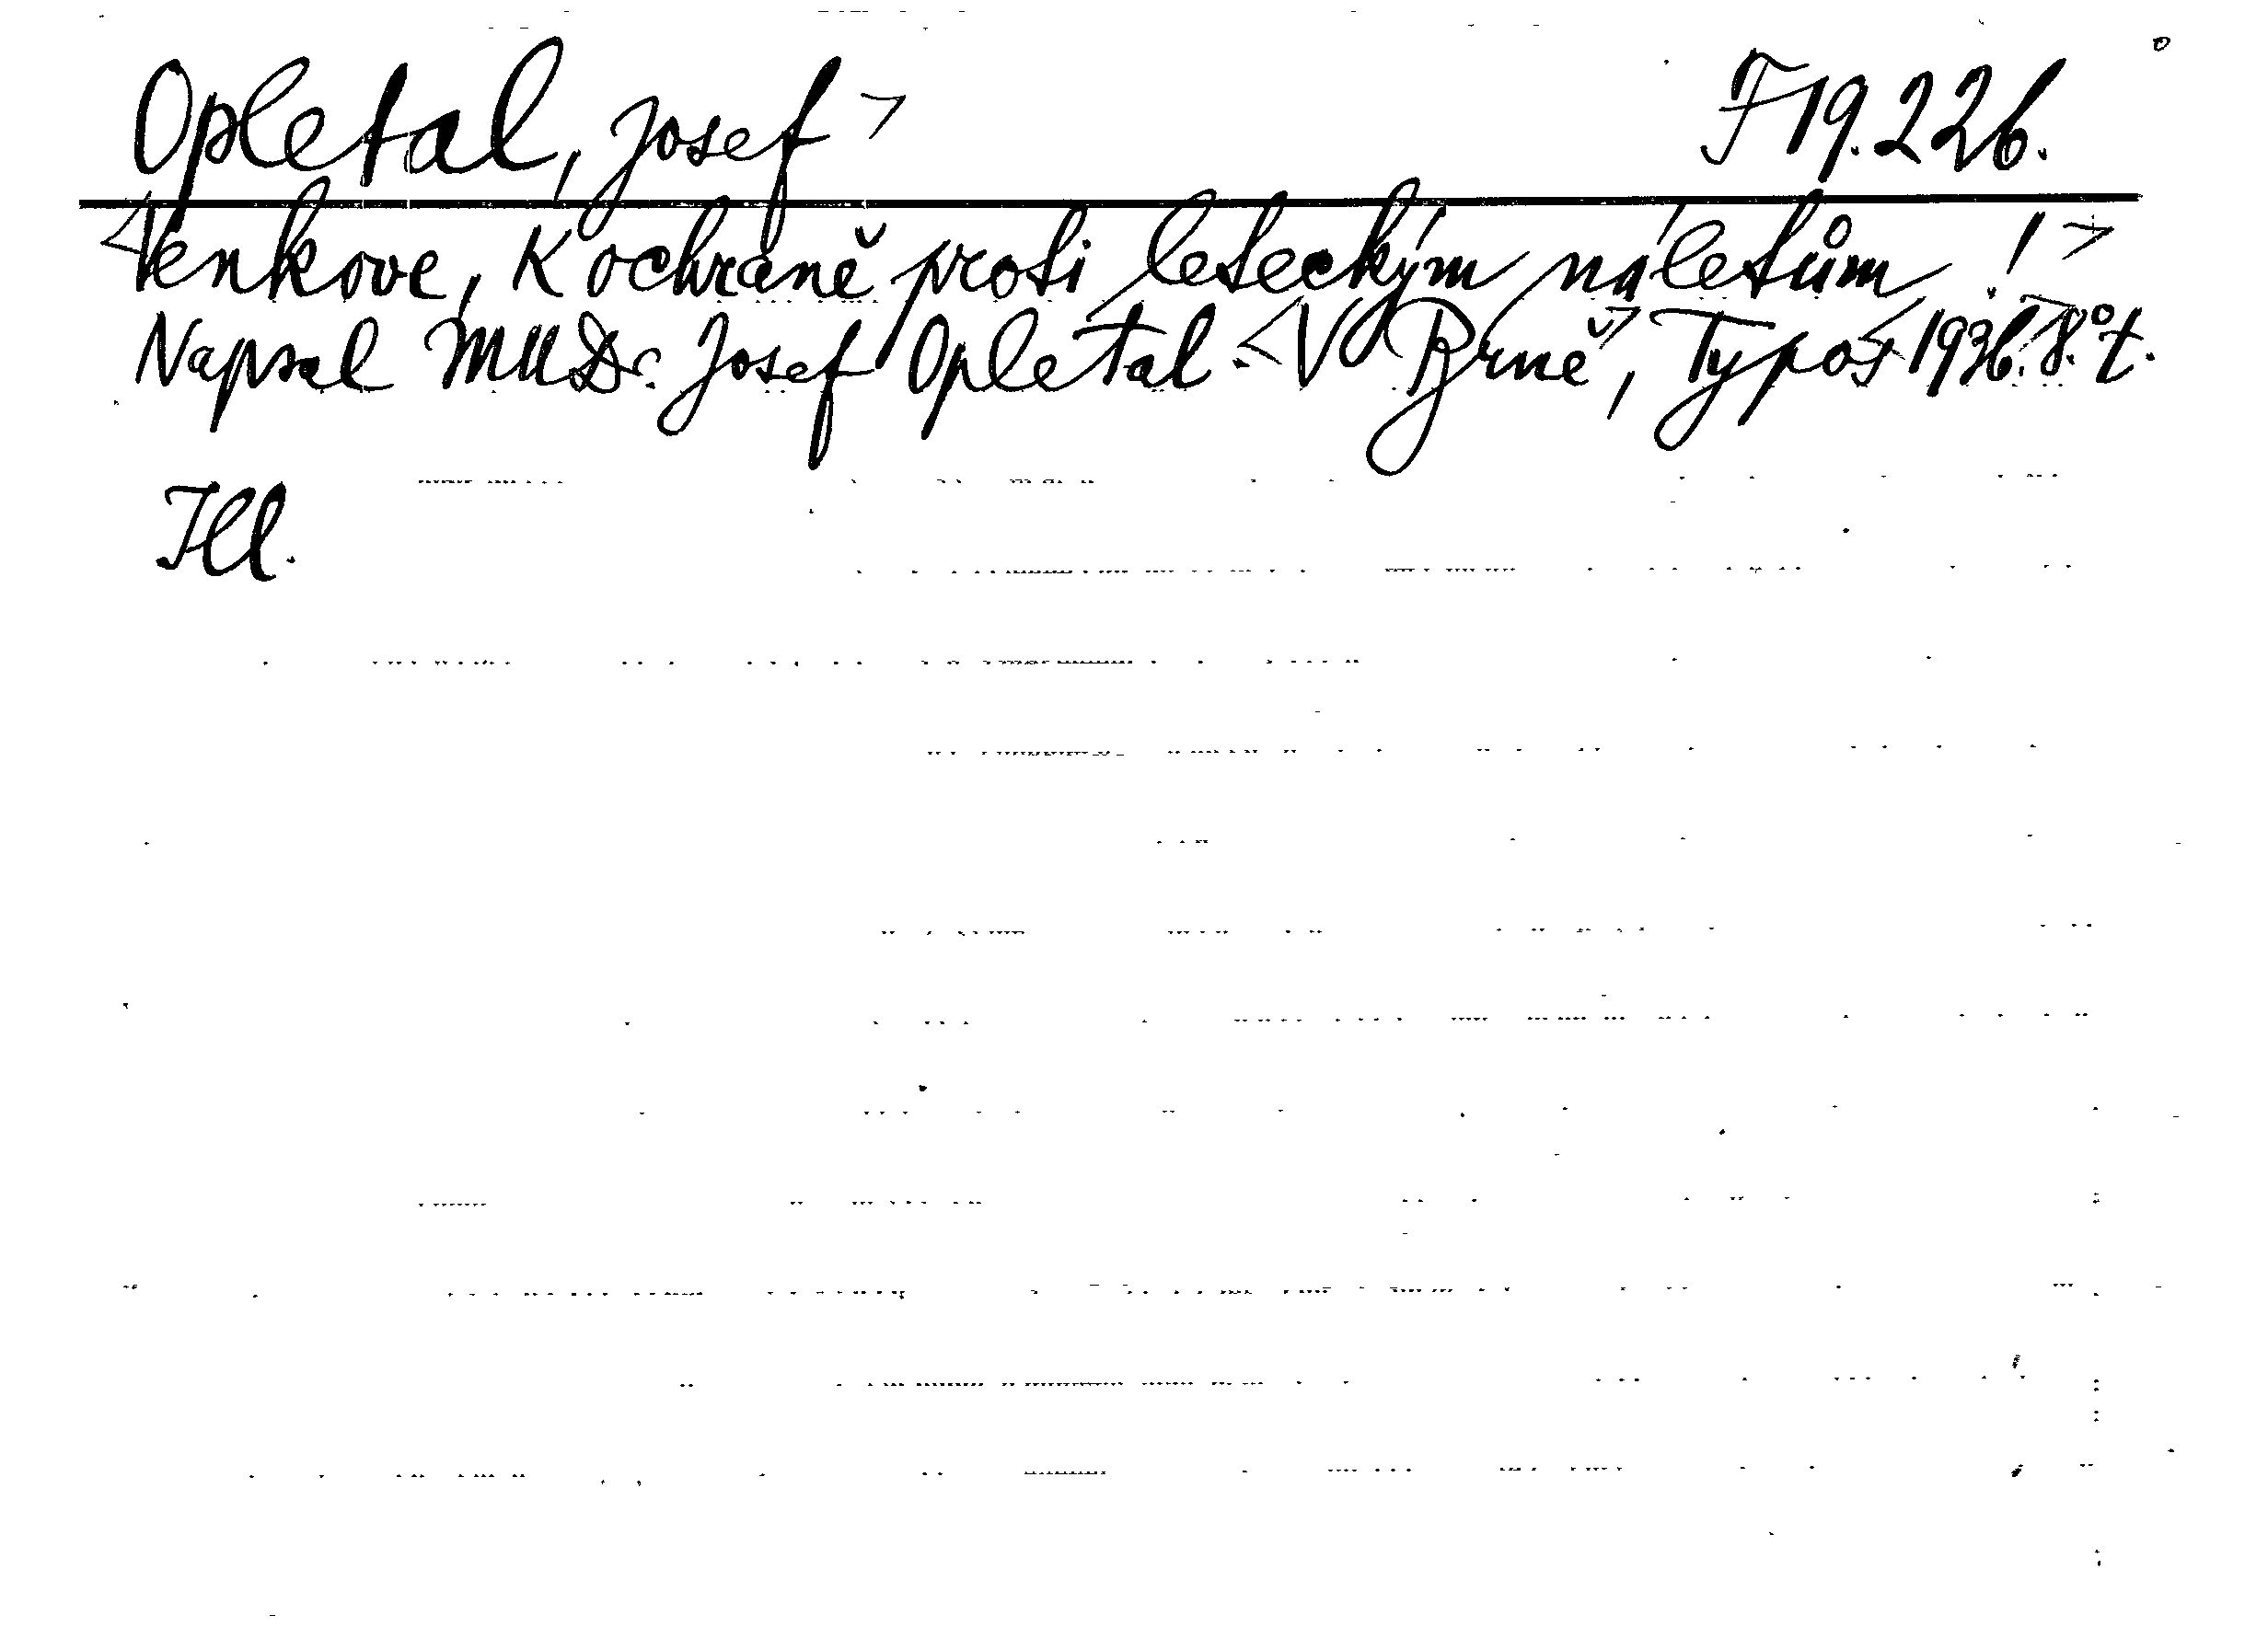 Opletal, Josef> F 19.226.
<Venkove, K ochraně proti leteckým náletům!>
Napsal MUDr. Josef Opletal. <V Brně>, Typos <1936.> 8.° t.
Ill.